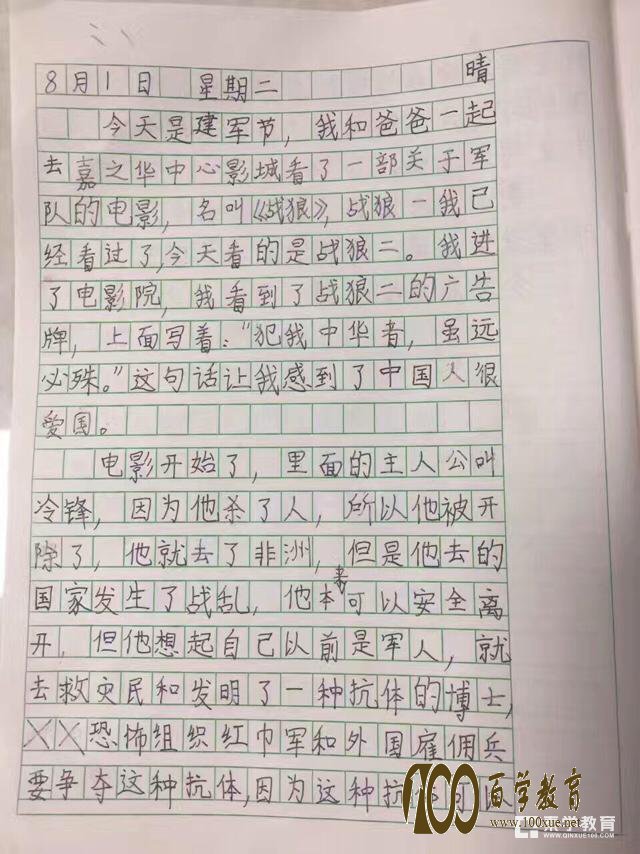 8月1日 星期二 晴
今天是建军节，我和爸爸一起
去嘉之华中心影城看了一部关于军
队的电影，名叫《战狼》，战狼一我已
经看过了，今天看的是战狼二。我进
了电影院，我看到了战狼二的广告
牌，上面写着："犯我中华者，虽远
必殊。"这句话让我感到了中国人很
爱国。
电影开始了，里面的主人公叫
冷锋，因为他杀了人，所以他被开
除了，他就去了非洲，但是他去的
国家发生了战乱，他本来可以安全离
开，但他想起自己以前是军人，就
去救灾民和发明了一种抗体的博士，
恐怖组织红巾军和外国雇佣兵
要争夺这种抗体，因为这种抗体可以
100百学教育
www.100xue.net
亲学教育
WWW.QINXUE100.COM